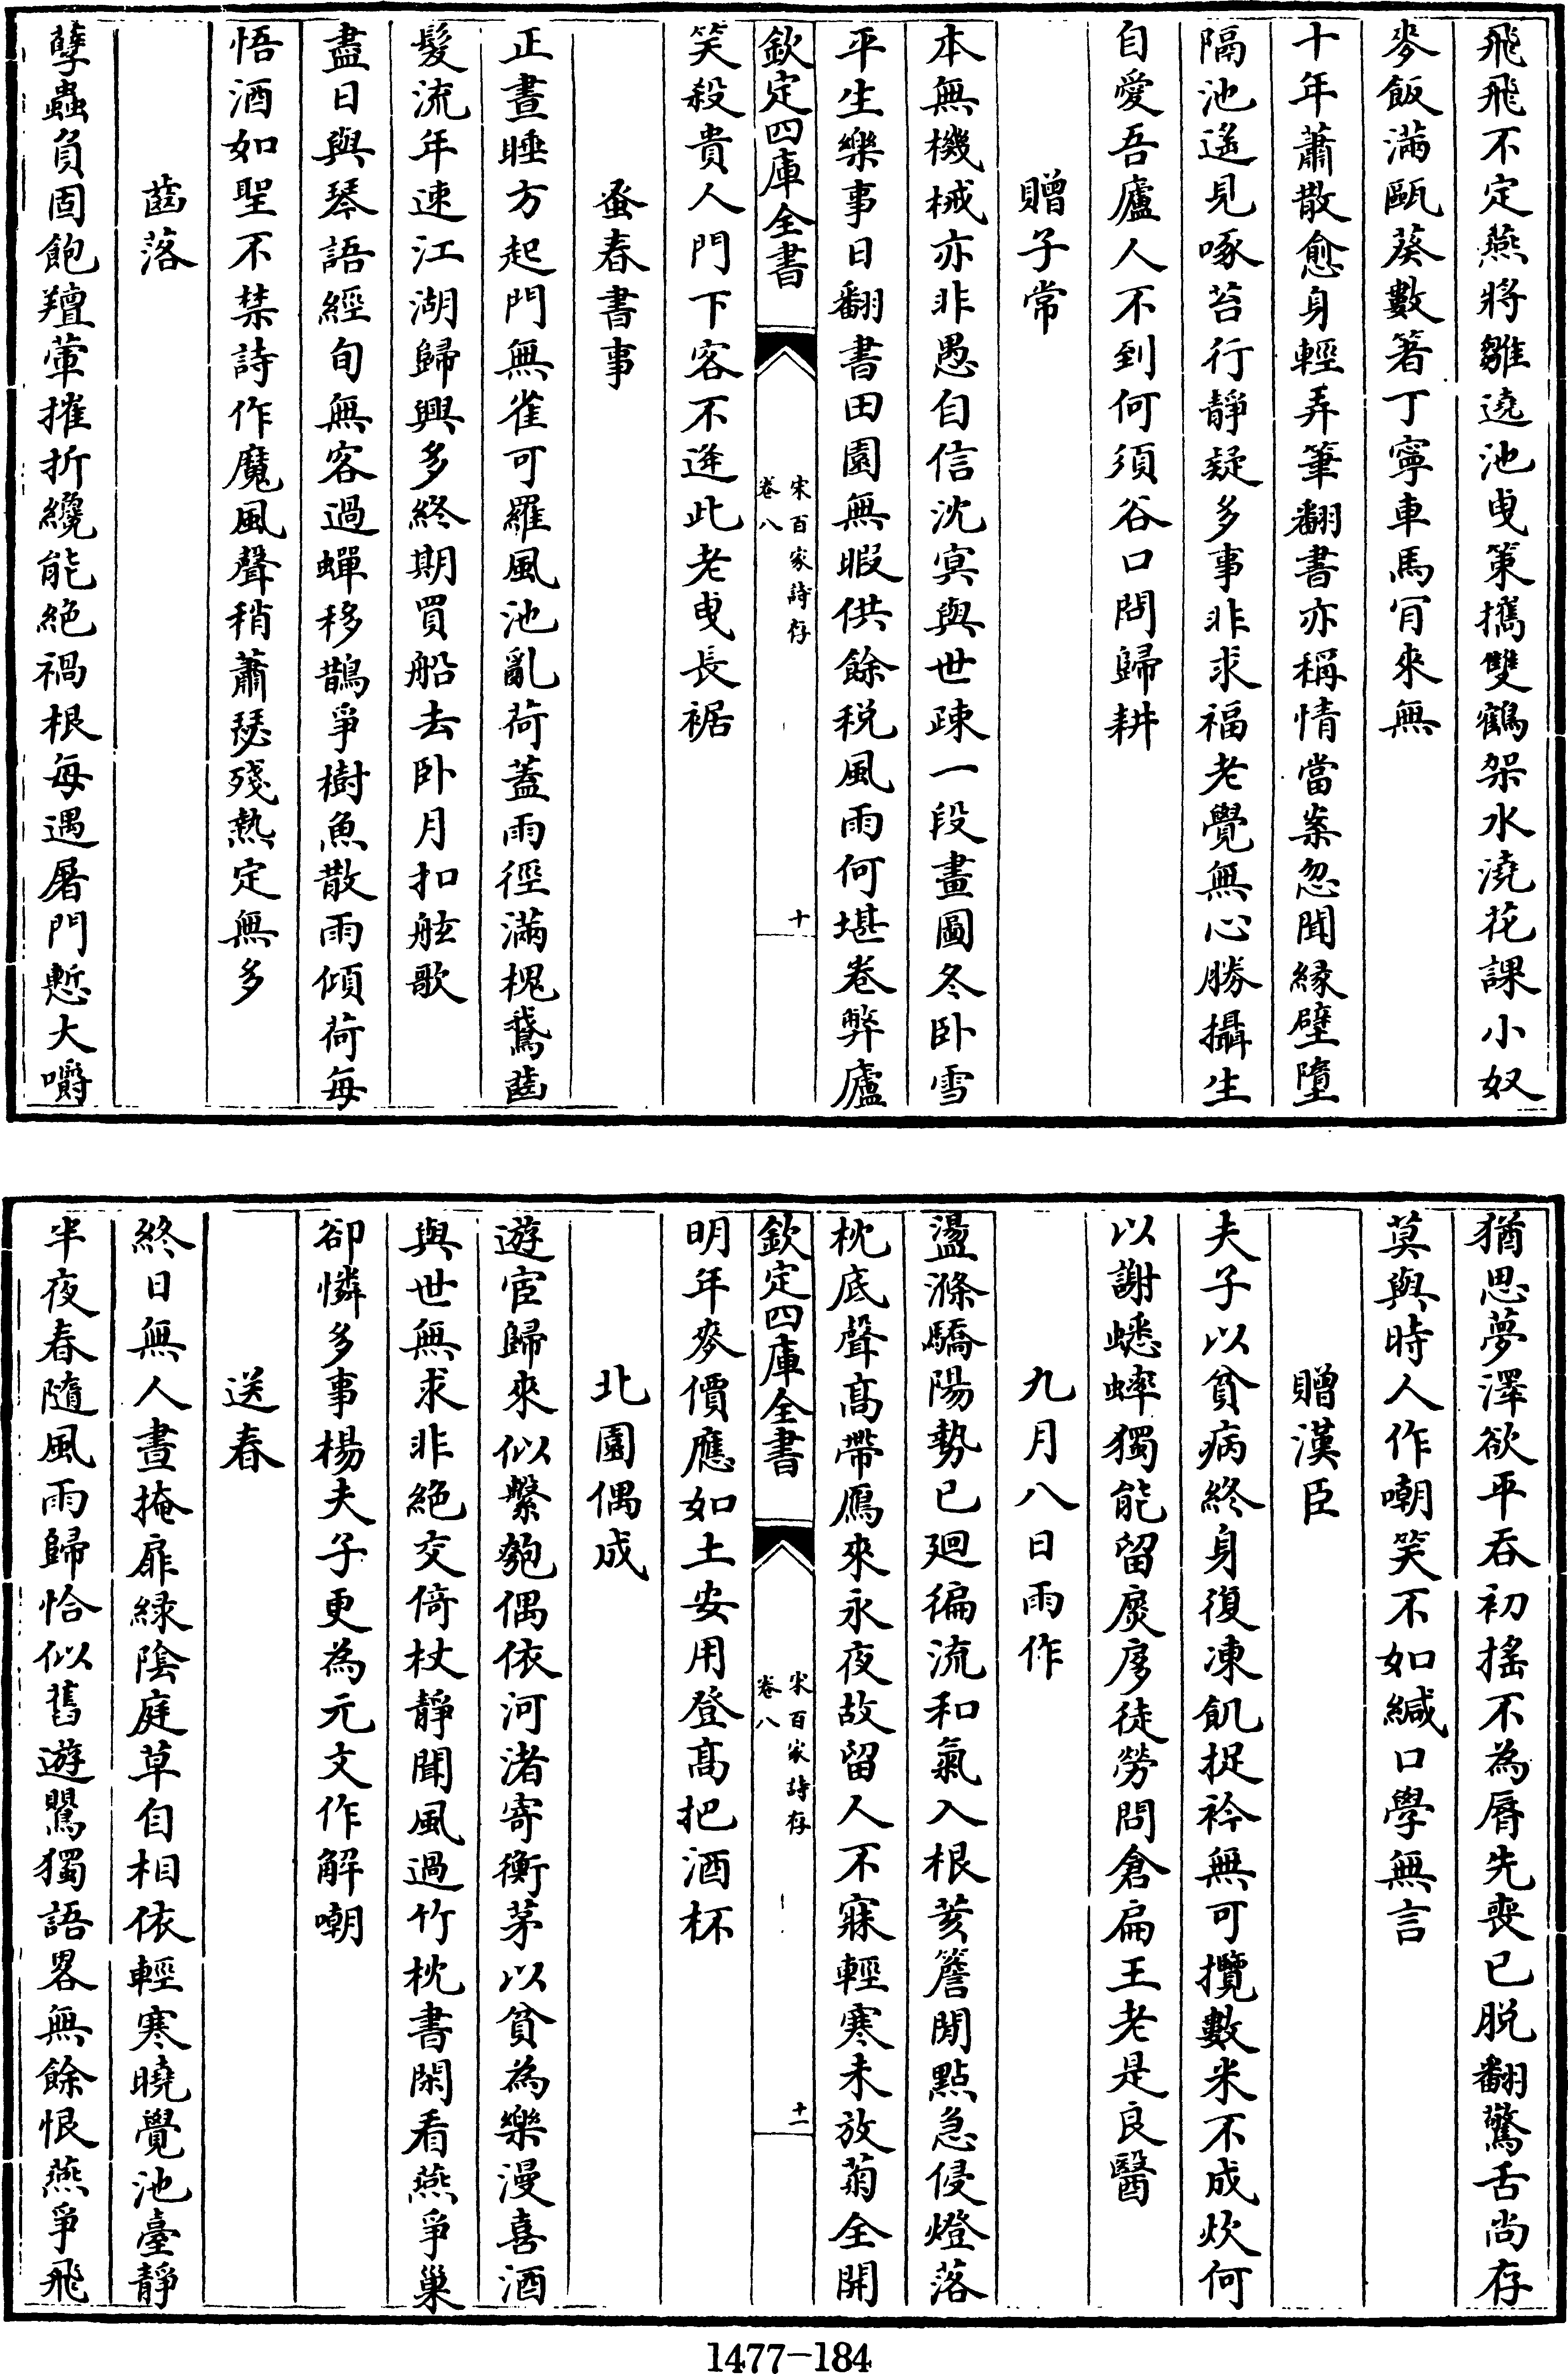 飛飛不定燕將雛遶池曵策攜雙鶴架水澆花課小奴
麥飯滿甌葵數箸丁寧車馬肎來無
十年蕭散愈身輕弄筆翻書亦稱情當案忽聞緣壁墮
隔池遙見啄苔行靜疑多事非求福老覺無心勝攝生
自愛吾廬人不到何須谷口問歸耕
贈子常
本無機械亦非愚自信沈冥與世疎一段畫圖冬卧雪
平生樂事日翻書田園無暇供餘税風雨何堪卷弊廬
欽定四庫全書
宋百家詩存
卷八
十
笑殺貴人門下客不逄此老曵長裾
蚤春書事
正晝睡方起門無雀可羅風池亂荷蓋雨徑滿槐鵞齒
髪流年速江湖歸興多終期買船去卧月扣舷歌
盡日與琴語經旬無客過蟬移鵲爭樹魚散雨傾荷每
悟酒如聖不禁詩作魔風聲稍蕭瑟殘熱定無多
齒落
孽蟲負固飽羶葷摧折纔能絶禍根每遇屠門慙大嚼
猶思夢澤欲平吞初搖不為脣先喪已脱翻驚舌尚存
莫與時人作嘲笑不如緘口學無言
贈漢臣
夫子以貧病終身復凍飢捉衿無可攬數米不成炊何
以謝蟋蟀獨能留扊扅徒勞問倉扁王老是良醫
九月八日雨作
盪滌驕陽勢已廻徧流和氣入根荄簷閒點急侵燈落
枕底聲髙帶鴈來永夜故留人不寐輕寒未放菊全開
欽定四庫全書
宋百家詩存
卷八
十一
明年麥價應如土安用登髙把酒杯
北園偶成
遊宦歸來似繫匏偶依河渚寄衡茅以貧為樂漫喜酒
與世無求非絶交倚杖靜聞風過竹枕書閑看燕爭巢
卻憐多事楊夫子更為元文作解嘲
送春
終日無人晝掩扉緑陰庭草自相依輕寒曉覺池臺靜
半夜春隨風雨歸恰似舊遊鸎獨語畧無餘恨燕爭飛
1477-184